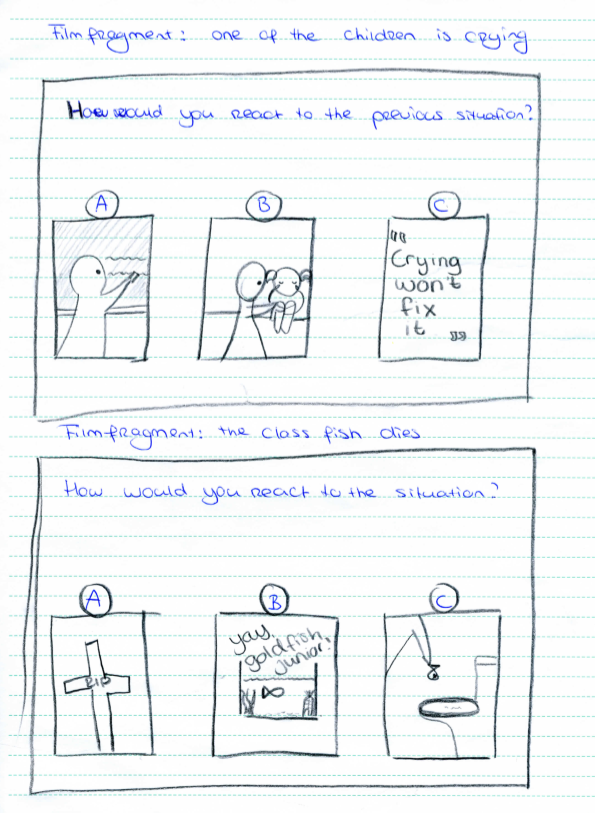 Filmfragment: one of the children is crying
How would you react to the previous situation?
A B C
"Crying
won't
fix
it"
Filmfragment: the class fish dies
How would you react to the situation?
A B C
RIP
yay,
goldfish
junior!